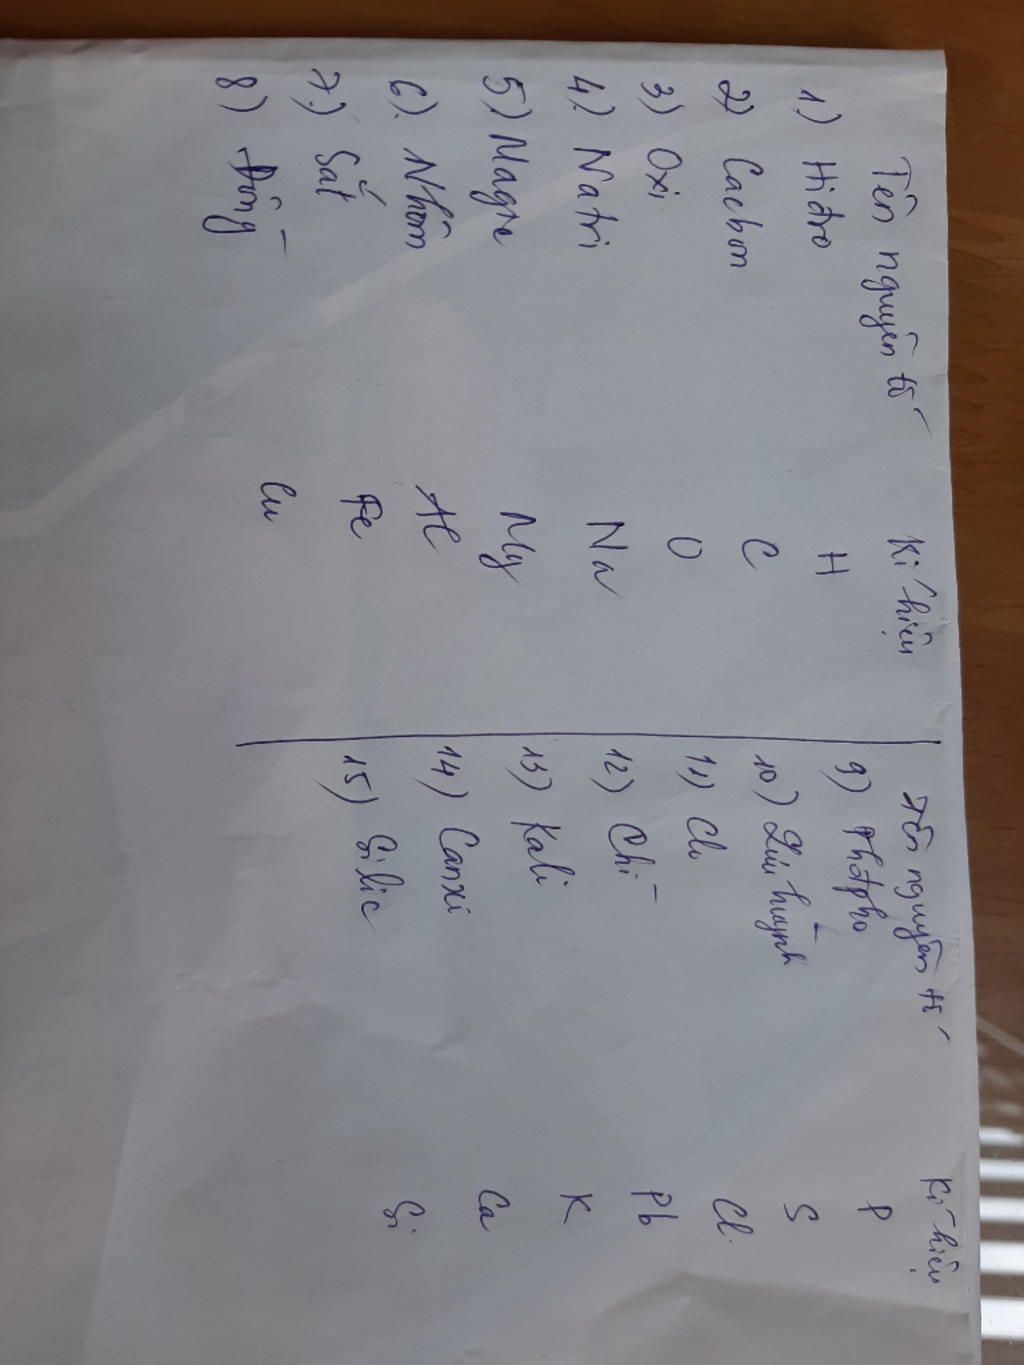 Tên nguyên tố Kí hiệu
1) Hiđro H
2) Cacbon C
3) Oxi O
4) Natri Na
5) Magie Mg
6) Nhôm Al
7) Sắt Fe
8) Đồng Cu
Tên nguyên tố Kí hiệu
9) Photpho P
10) Lưu huỳnh S
11) Clo Cl
12) Chì Pb
13) Kali K
14) Canxi Ca
15) Silic Si